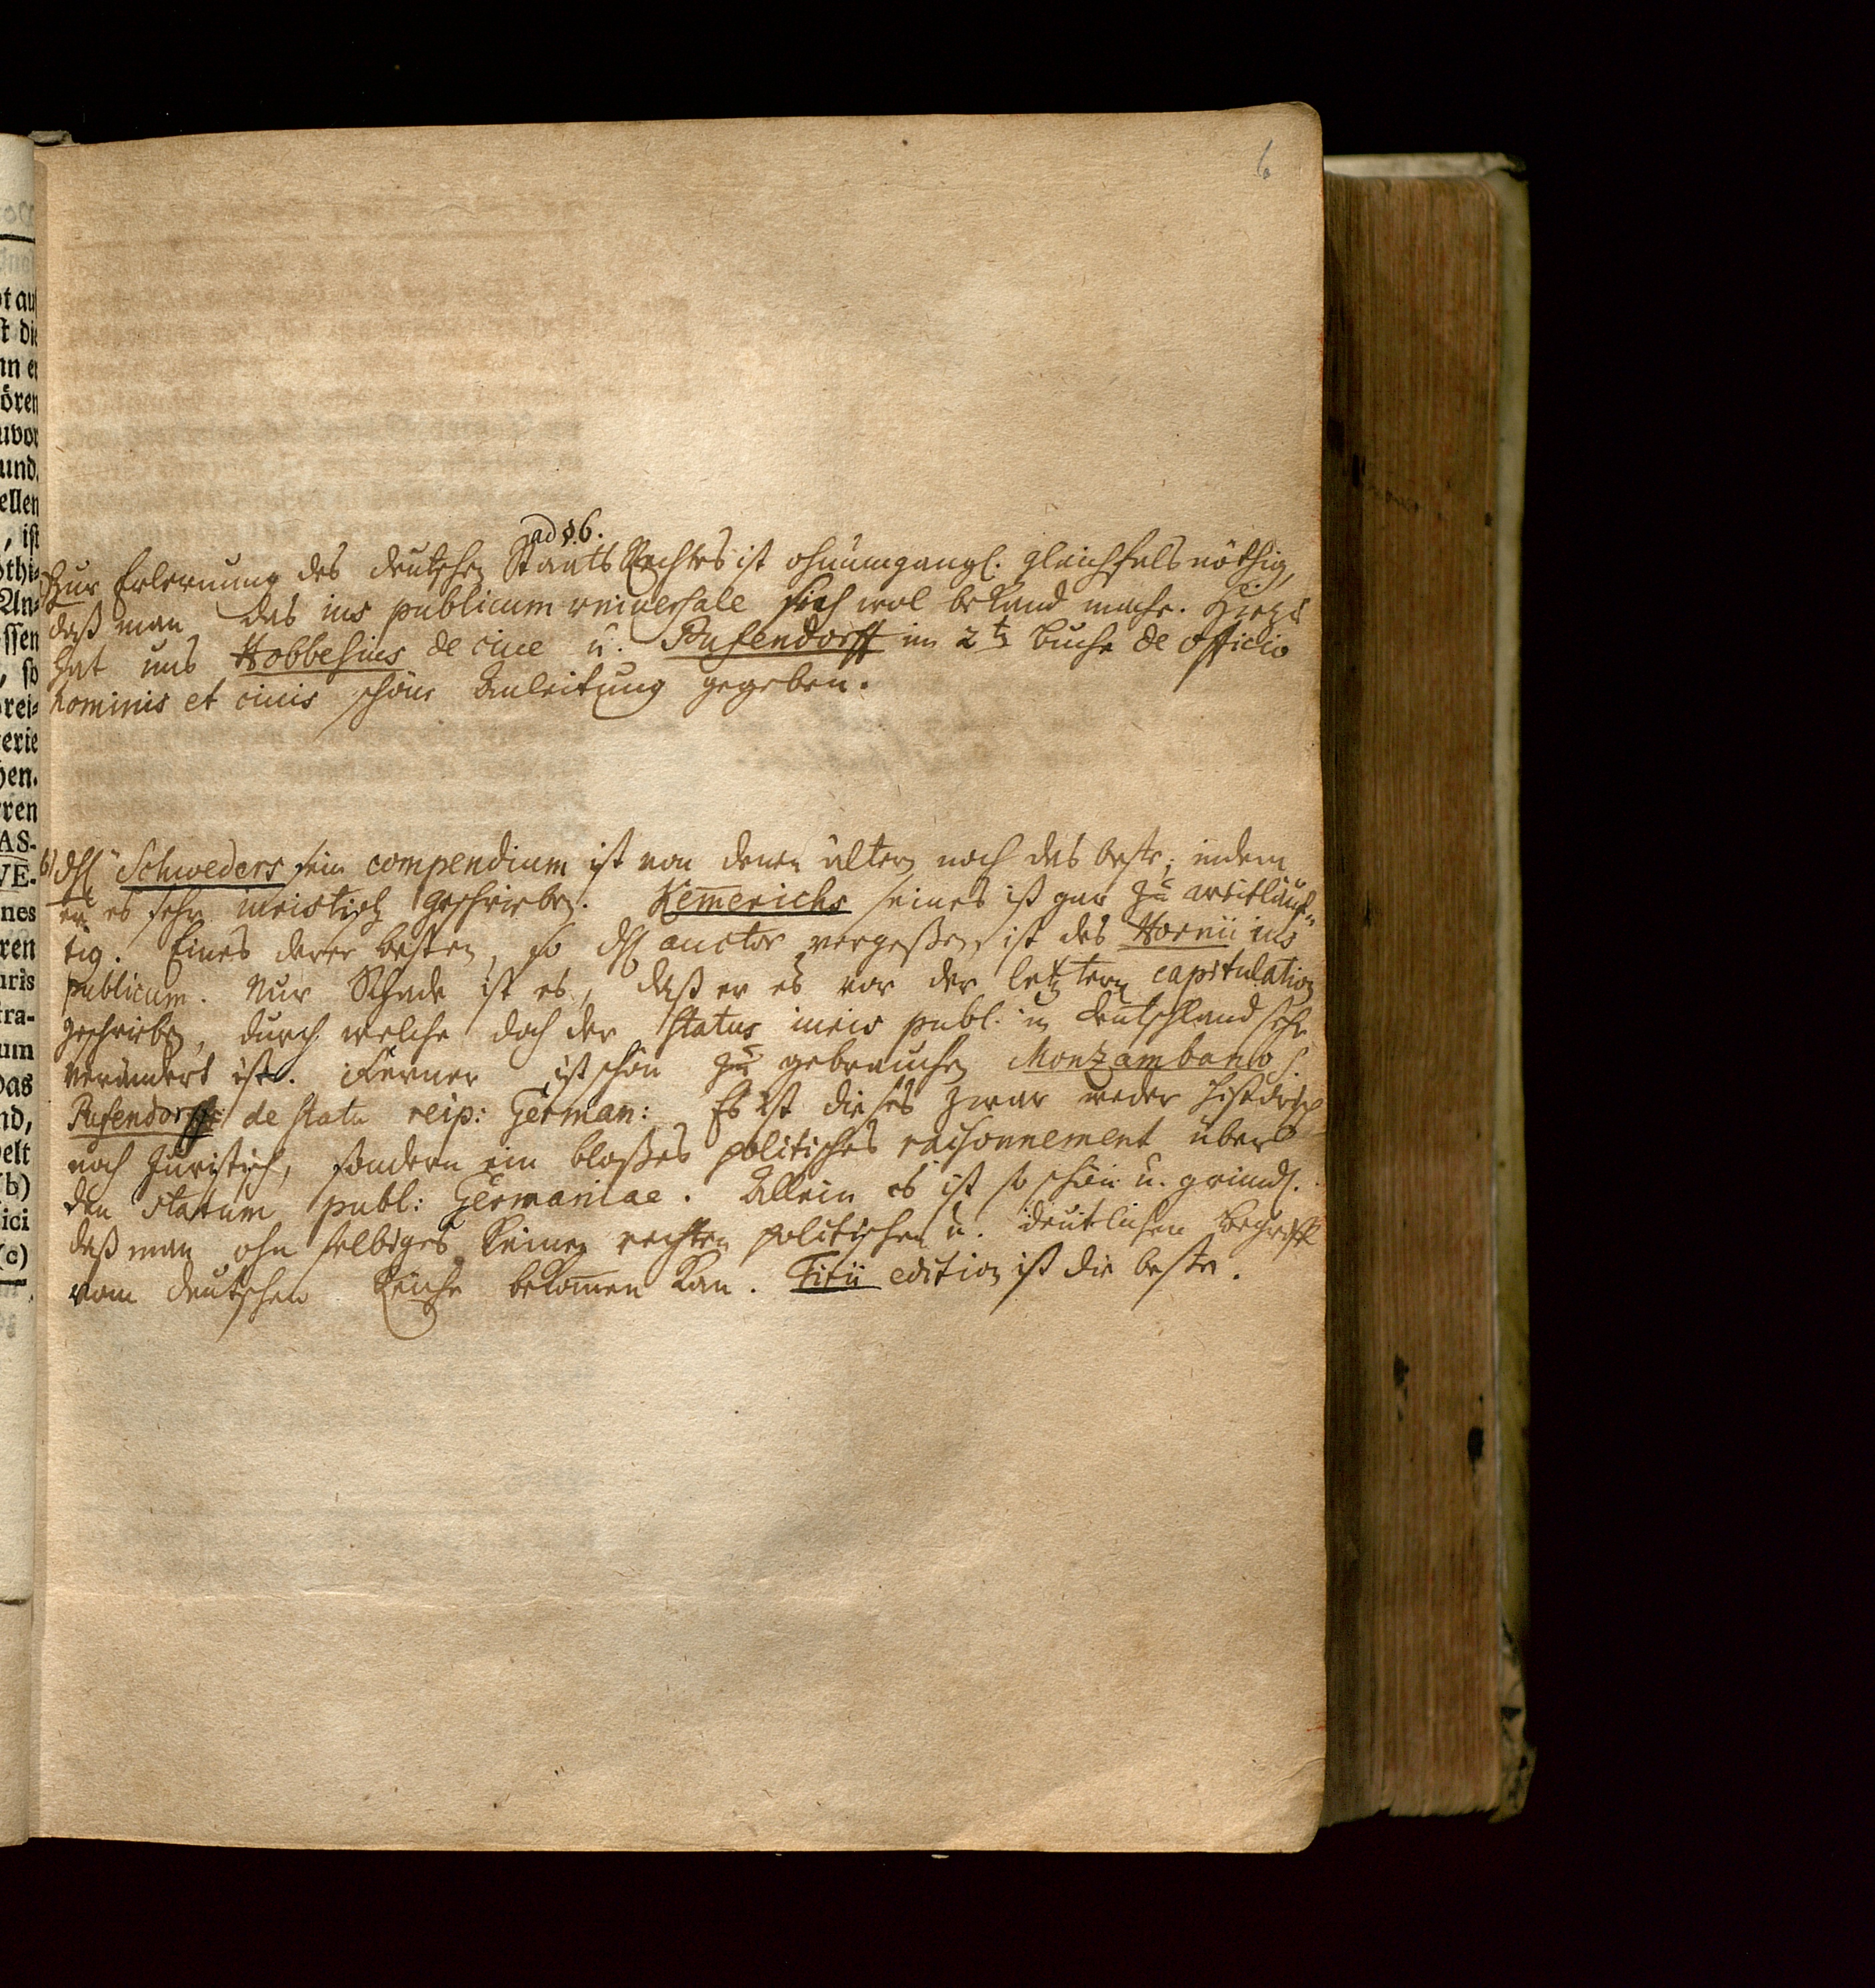 6
ad §.6.
Zur Erlernung des deutschen Staats Rechtes ist ohnumgangl. gleichfals nöthig,
daß man das ius publicum universale sich wol bekand mache. Hiezu
hat uns Hobbesius de cive u. Pufendorff im 2ten Buche de officio
hominis et civis schöne Anleitung gegeben.
b) Schweders sein compendium ist von denen ältern noch das beste; indem
er es sehr iuristisch geschrieben. Kemerichs seines ist gar zu weitläuf-
tig. Eines derer besten, so auctor vergeßen, ist des Hornii ius
publicum. Nur Schade ist es, daß er es vor der letztern capitulation
geschrieben, durch welche doch der status iuris publ. in Deutschland sehr
verändert ist. Ferner ist schön zu gebrauchen Monzambano s.
Pufendorff: de statu reip: German: Es ist dieses zwar weder historisch
noch Juristisch, sondern ein bloßes politisches raisonnement über
den statum publ: Germaniae. Allein es ist so schön u. gründl.
daß man ohn selbiges keinen rechten politischen u. deutlichen Begriff
vom deutschen Reiche bekomen kan. Titii edition ist die beste.
t au
st die
nn er
ören
uvor
und
ellen
, ist
othi=
An=
ssen
, so
rei=
erie
hen.
ren
AS-
VE-
nes
ren
uris
tra-
um
das
nd,
elt
(b)
ici
(c)